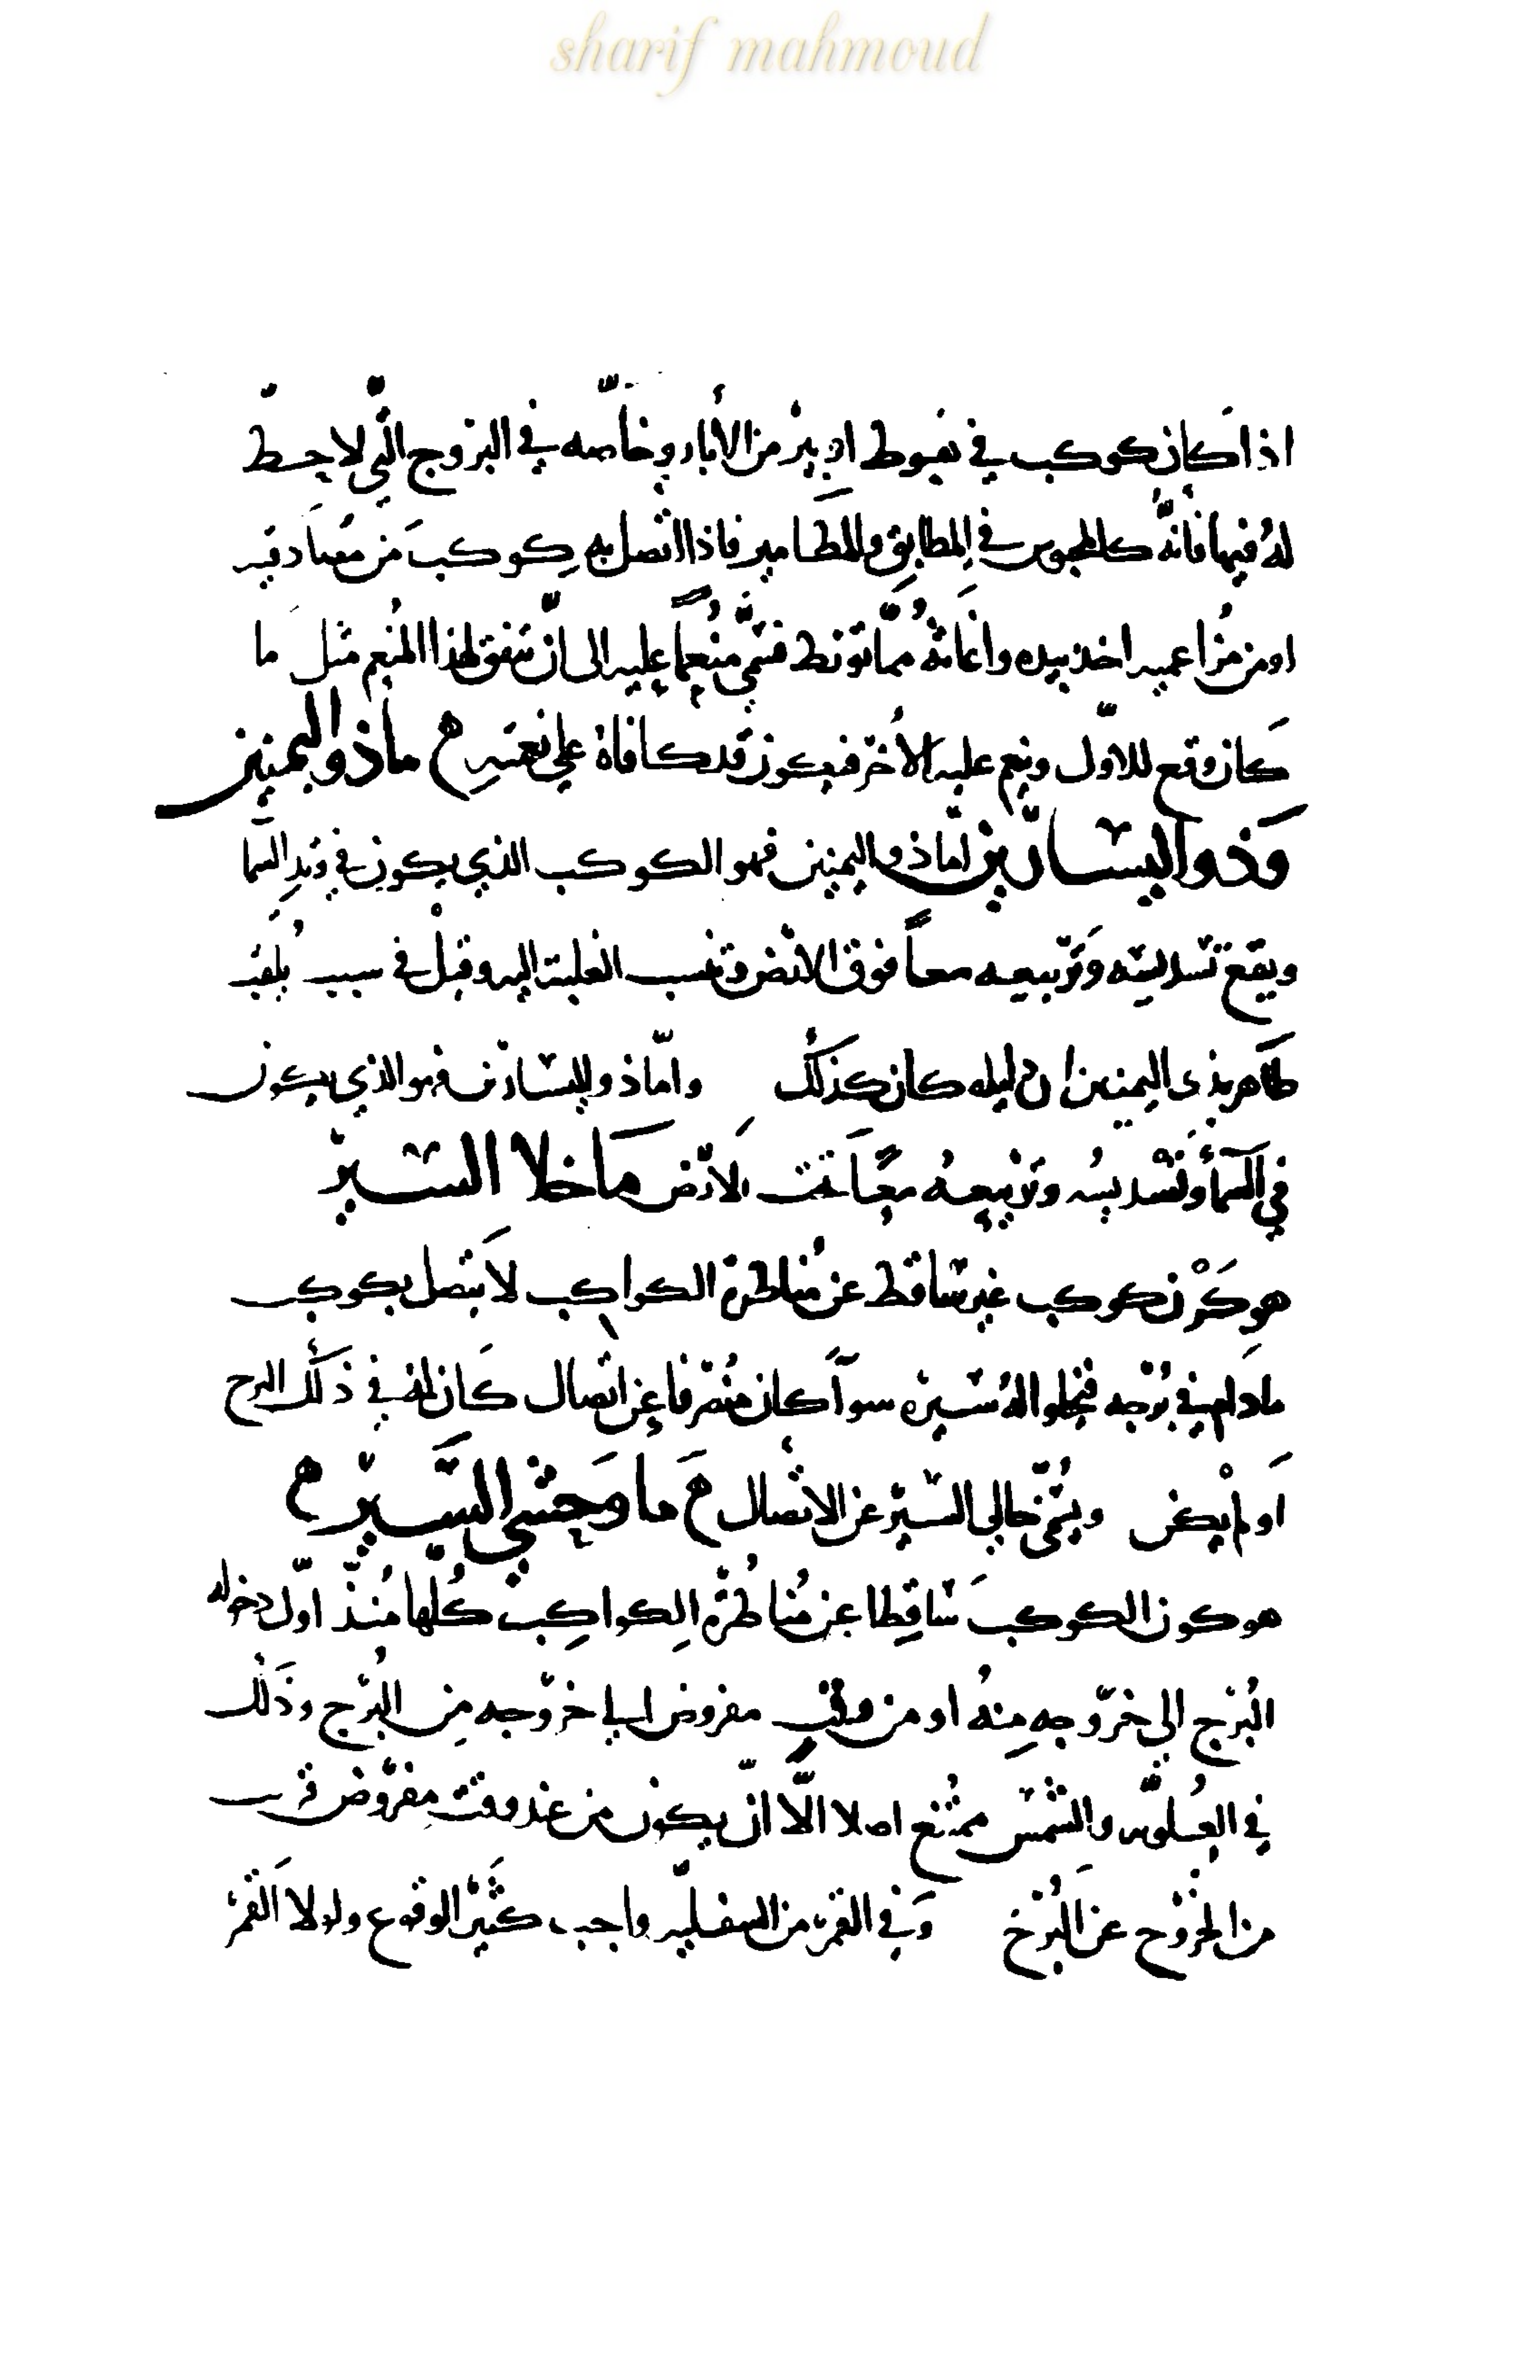 sharif mahmoud
اذا كان كوكب في هبوط او بير من الأبار وخاصّه في البروج الّتي لا حظّ
لهُ فيها فانّه كالمحبوس في المطابق والمطامير فاذا اتّصل به كوكب من مصادقيه
او من مزاعميه اخذ بيده واغاثهُ ممّا تورّط فسمّي منعماً عليه الى انّ يتفق لهذا المنعم مثل ما
كان وقع للاوّل وينعم عليه الأخر فيكون قد كافاهُ على نعمته ۞ ما ذو اليمينين
وذو اليسارين امّا ذو اليمينين فهو الكوكب الذي يكون في وتد السّما
ويقع تسديسه وتربيعه معاً فوق الارض وتنسب الغلبة اليه وقيل في سبب تلقيب
طاهر بذى اليمينين ان ليله كان كذلك وامّا ذو اليسارين فهو الذي يكون
في السّمأ وتسديسُه وتربيعهُ معًا تحت الارض ما خلا السير
هو كون كوكب غير ساقط عن مناظرة الكواكب لا يتصل بكوكب
مادام في برجه فيخلوا لهُ سيره سوآ كان منصرفا عن اتصال كان له في ذلك البرج
او لم يكن ويسمّى خالي السير عن الاتصال ۞ ما وحشي السّير ۞
هو كون الكوكب ساقِطا عن مُناظرة الكواكِب كُلها مُنذ اوّل دخوله
البُرج الي خروجه مِنهُ او من وقت مفروض الى خروجه مِن البُرج وذلك
في العُلويّه والشمس ممتنع اصلا الّا انّ يكون من عند وقت مفروض قريب
من الخروج عن البُرج وفي القمر من السفليّه واجب كثير الوقوع ولولا القمر